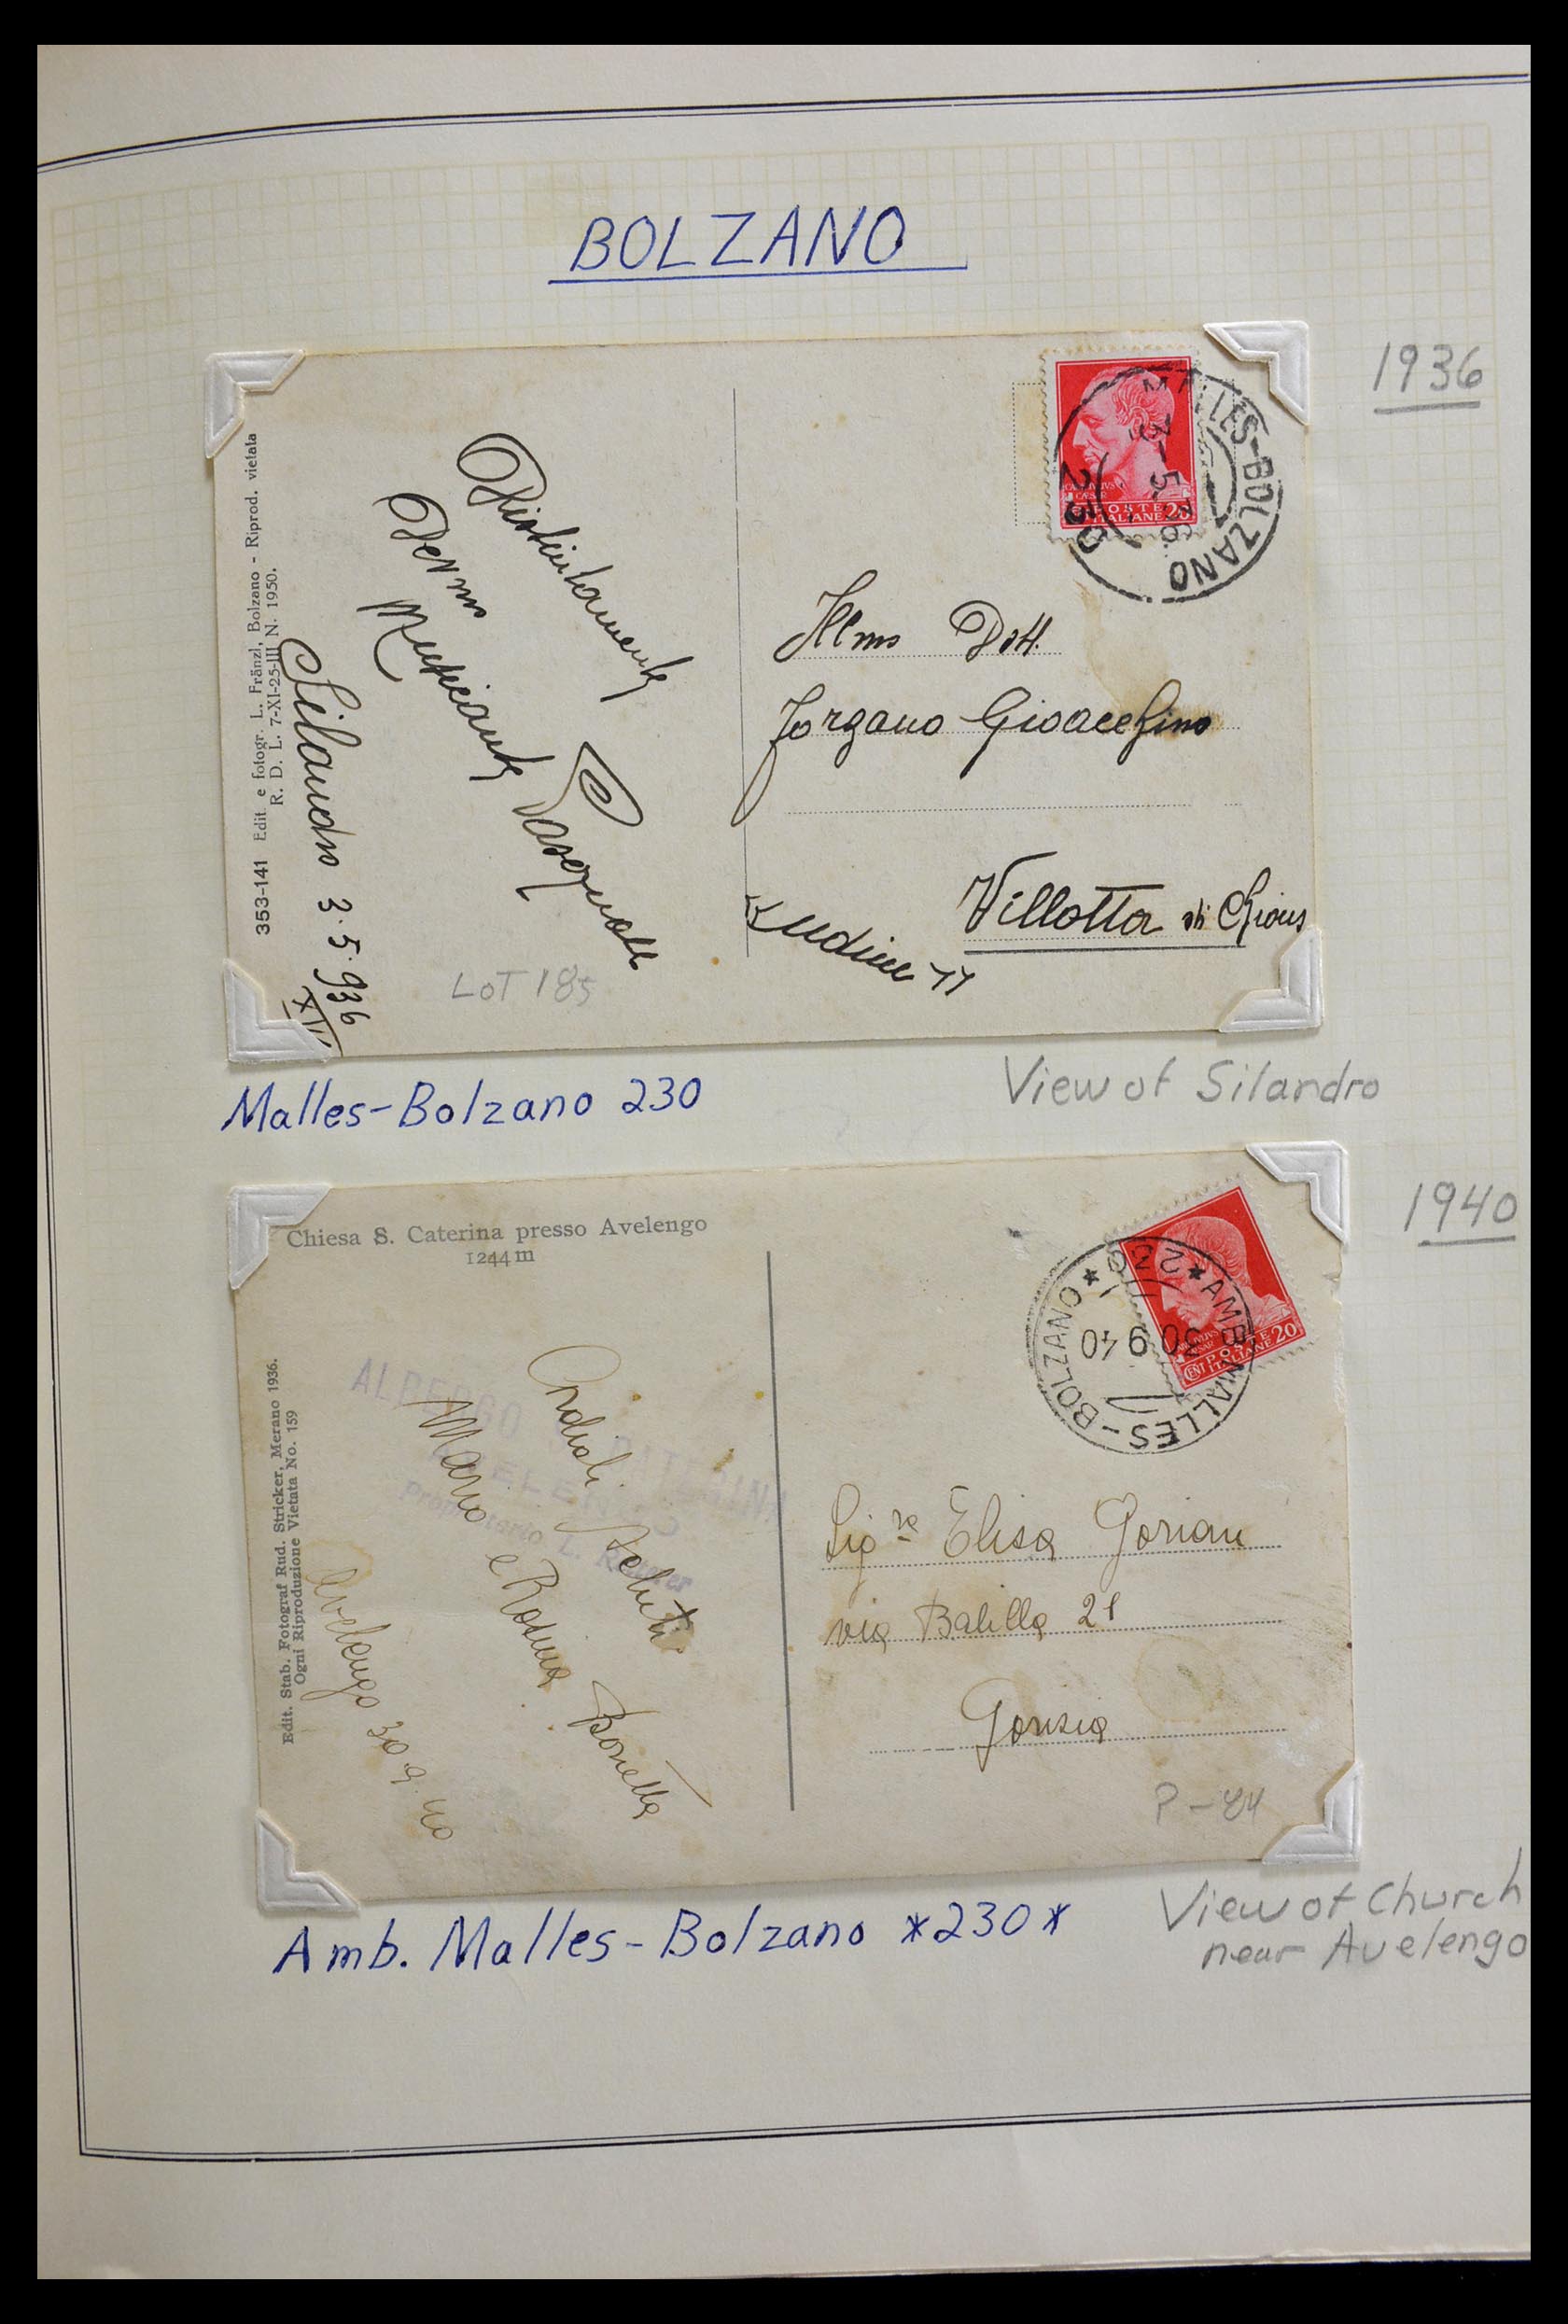 BOLZANO
1936
353-141 Edit. e fotogr. L. Fränzl, Bolzano - Riprod. vietata
R. D. L. 7-XI-25-III N. 1950.
Silandro 3.5.936
XIV
Distintamente
LOT 185
POSTE
ITALIANE 20
LES-BOLZANO
3-5-36
230
Dott.
Villotta di
Malles-Bolzano 230
View of Silandro
1940
Chiesa S. Caterina presso Avelengo
1244 m
Edit. Stab. Fotograf Rud. Stricker, Merano 1936.
Ogni Riproduzione Vietata No. 159
Avelengo 30 9 40
ALBERGO
Cordiali saluti
Mario e Rosina
CENT POSTE
ITALIANE 20
AMB. MALLES-BOLZANO * 230 *
30 9 40
Sig.ra Elisa
via Balilla 21
Gorizia
Amb. Malles-Bolzano *230*
View of Church
near Avelengo